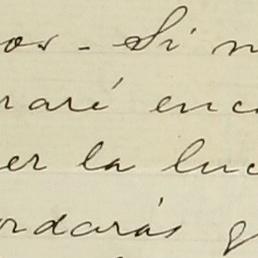 os. - Si n
raré enc
er la luc
ordarás q